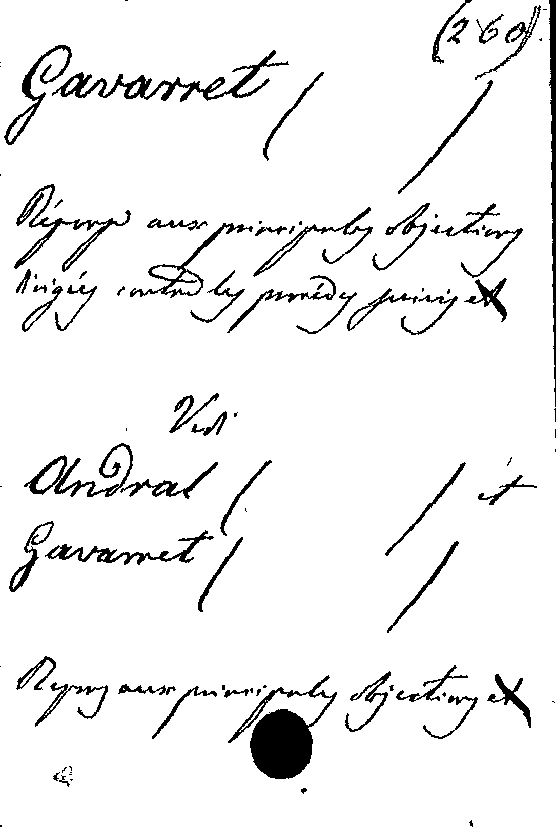 (260)
Gavarret ( )
Réponse aux principales objections
dirigées contre les procédés suivis et
Vedi
Andral ( ) et
Gavarret ( )
Réponse aux principales objections et